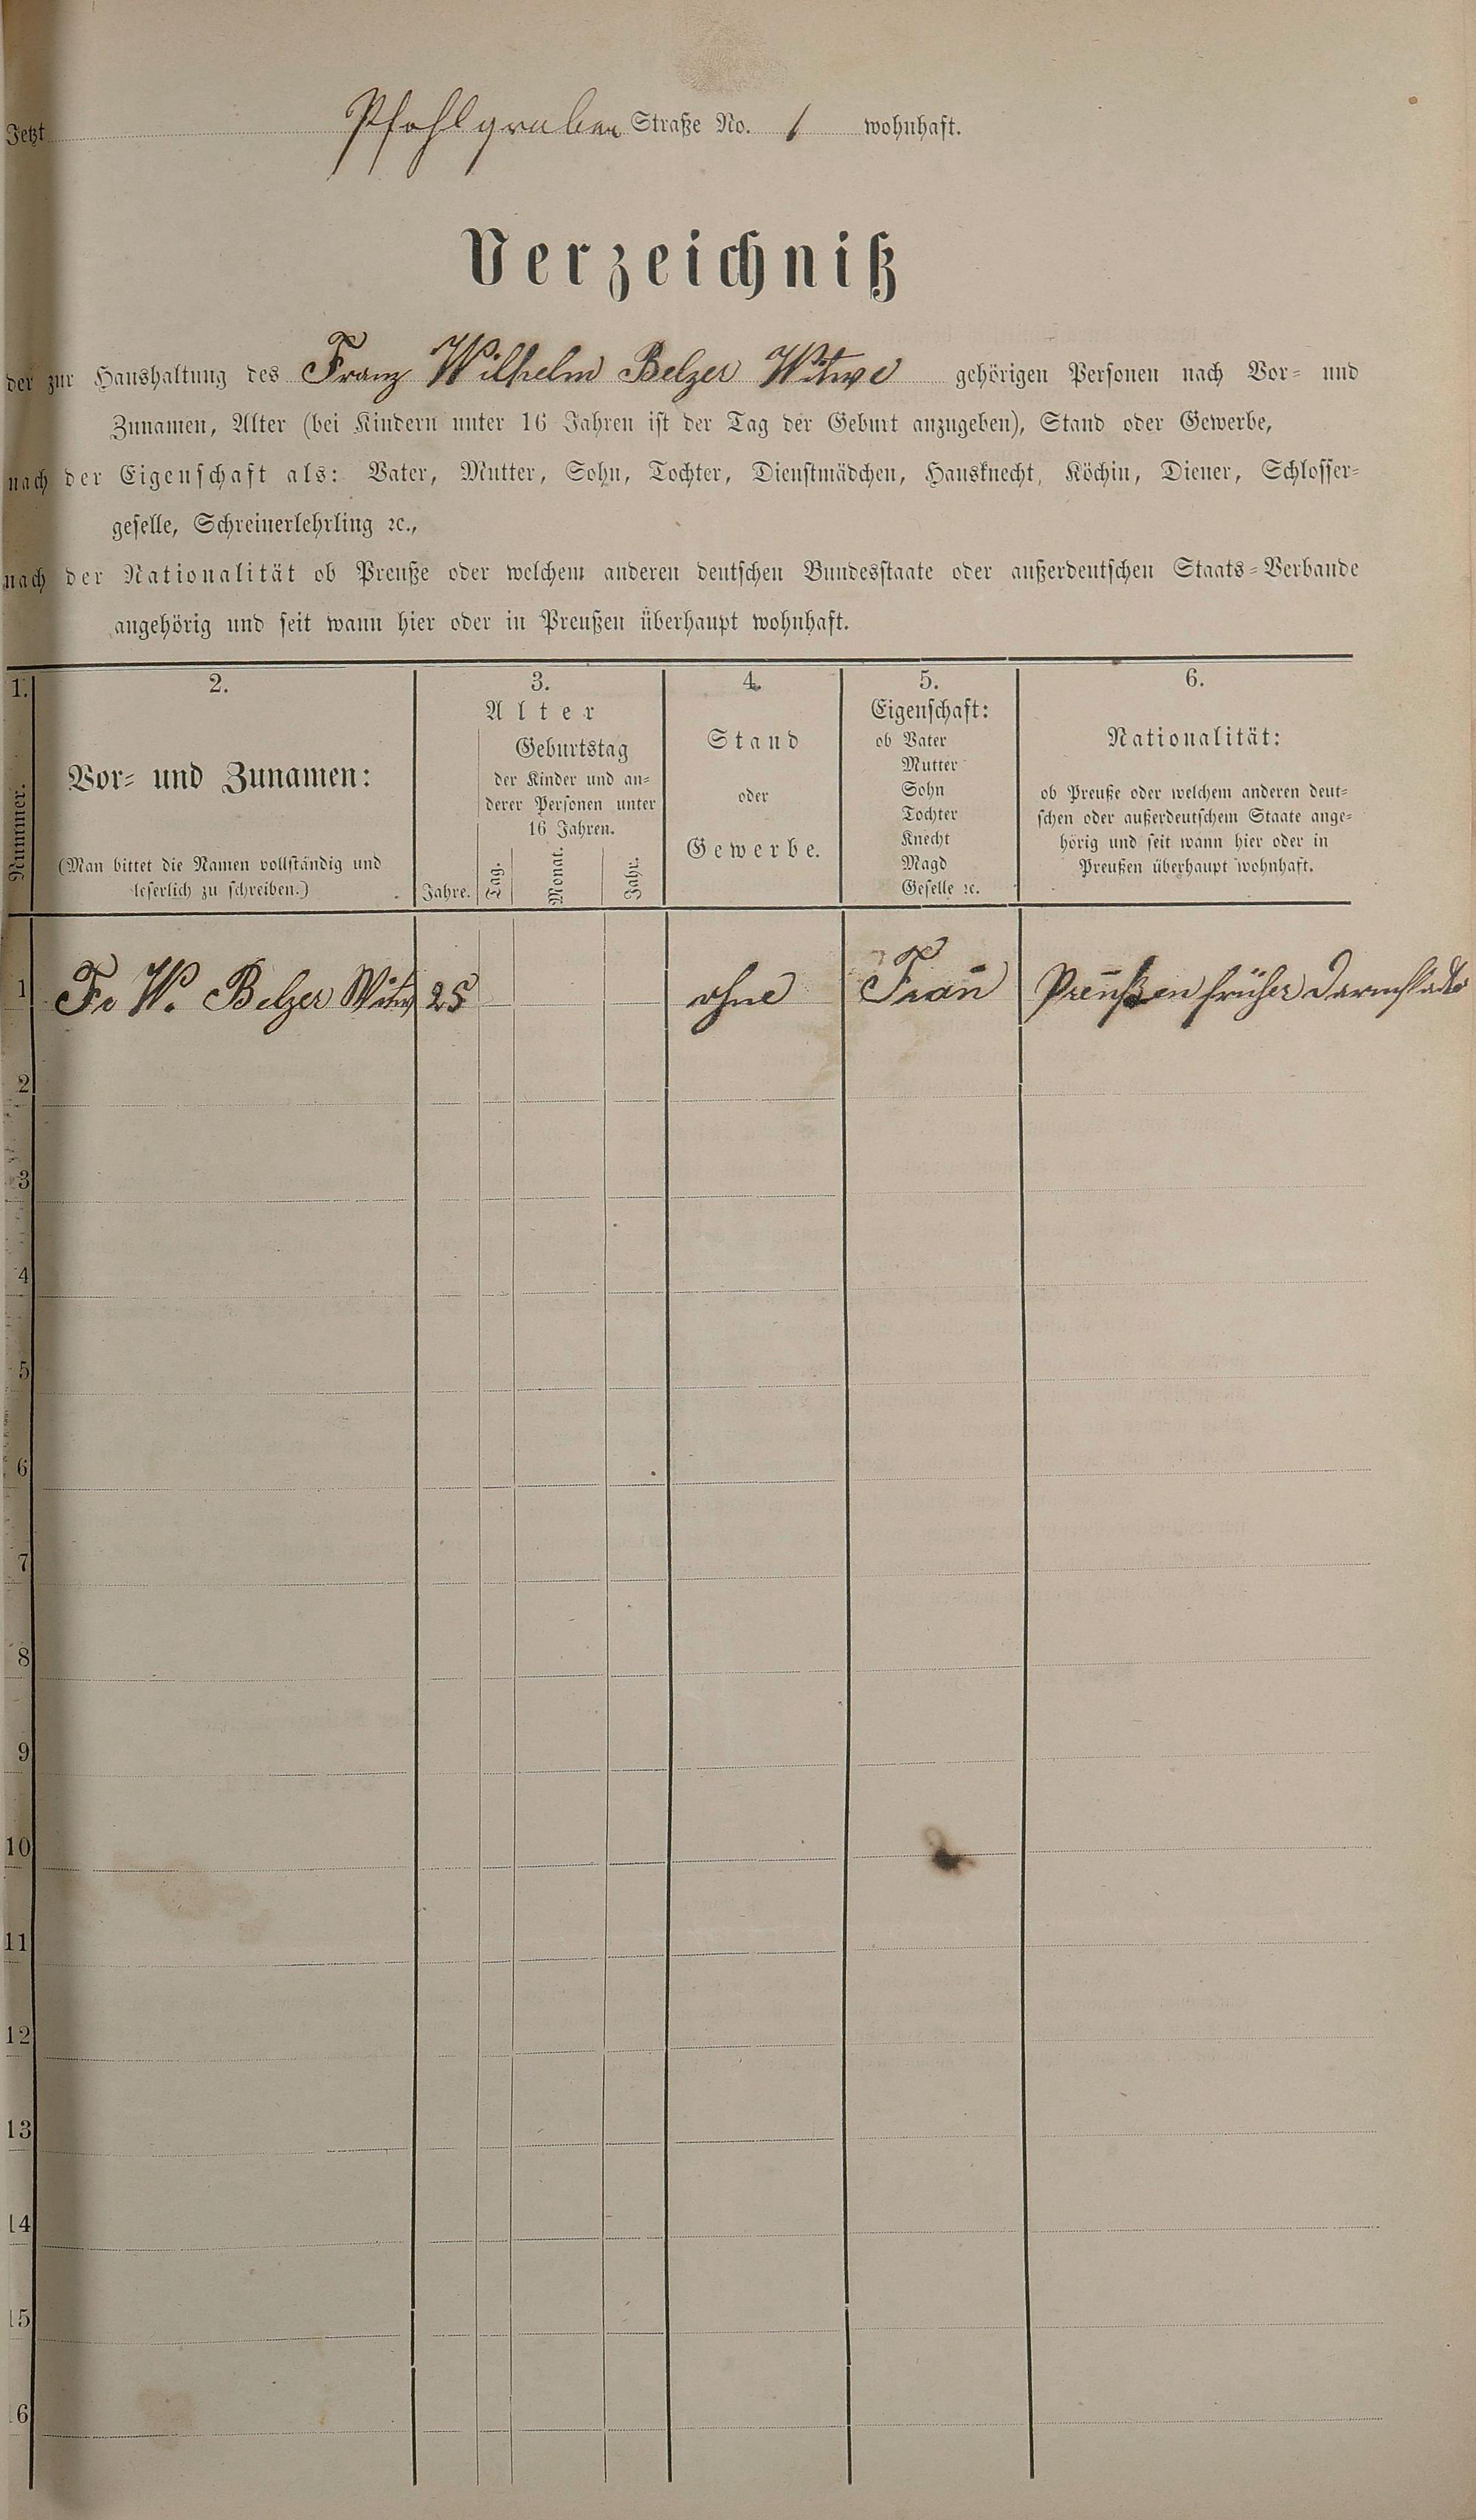 Jetzt Pfohlgruben Straße No. 1 wohnhaft.
Verzeichniß
der zur Haushaltung des Franz Wilhelm Belzer Witwe gehörigen Personen nach Vor- und
Zunamen, Alter (bei Kindern unter 16 Jahren ist der Tag der Geburt anzugeben), Stand oder Gewerbe,
nach der Eigenschaft als: Vater, Mutter, Sohn, Tochter, Dienstmädchen, Hausknecht, Köchin, Diener, Schlosser-
geselle, Schreinerlehrling ꝛc.,
nach der Nationalität ob Preuße oder welchem anderen deutschen Bundesstaate oder außerdeutschen Staats-Verbande
angehörig und seit wann hier oder in Preußen überhaupt wohnhaft.
1.
Nummer.
2.
Vor- und Zunamen:
(Man bittet die Namen vollständig und
leserlich zu schreiben.)
3.
Alter
Geburtstag
der Kinder und an-
derer Personen unter
16 Jahren.
Jahre. Tag. Monat. Jahr.
4.
Stand
oder
Gewerbe.
5.
Eigenschaft:
ob Vater
Mutter
Sohn
Tochter
Knecht
Magd
Geselle ꝛc.
6.
Nationalität:
ob Preuße oder welchem anderen deut-
schen oder außerdeutschem Staate ange-
hörig und seit wann hier oder in
Preußen überhaupt wohnhaft.
1 Fr W. Belzer Witw 25 ohne Frau Preußen früher Darmstadt
2
3
4
5
6
7
8
9
10
11
12
13
14
15
6